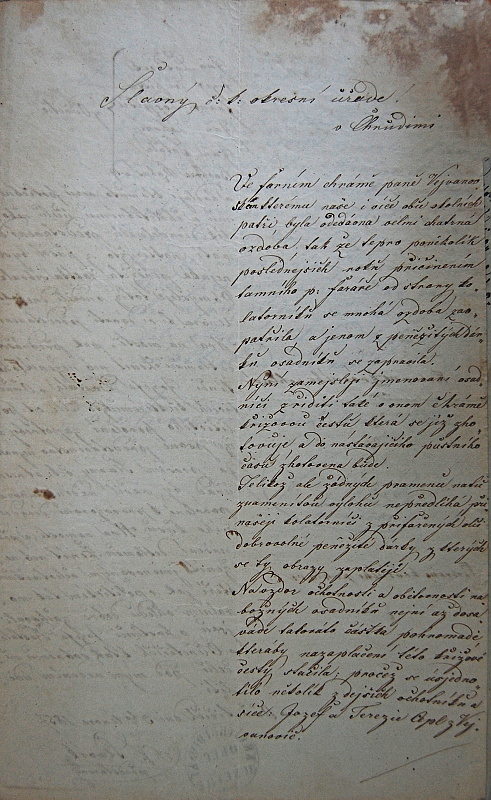 Slavný c: k: okresní úřade!
v Chrudimi
Ve farním chrámě páně Vejvanov
ském kterému naše i více obcí okolních
patří, byla odedávna velmi chatrná
ozdoba, tak že tepro poněkolik
poslednejších roků přičiněním
tamního p: faráře od strany ko
latorníků se mnohá ozdoba zao
patřila, a jenom z peněžitých dár
ků osadníků se zapravila.
Nýní zamejšlejí jmenovaní osad
níci zříditi také v onom chrámě
křížovou cestu která se již zho
tovuje a do nastávajícího pustního
času zhotovena bude.
Jelikož ale žádných pramenu na tu
znamenitou vylohu nepředlíhá při
našeji kolatorníci z přifařených obcí
dobrovolné peněžité dárky z kterých
se ty obrazy zaplatějí.
Navzdor ochotnosti a obětovnosti na
božných osadníků nejní až dosa
váde takováto částka pohromadě
kteraby na zaplacení této křížové
cesty stačila, pročež se usjedno
tilo několik zdejších ochotníků a
sice: Jozef a Terezie Apl z Vej
vanovic.